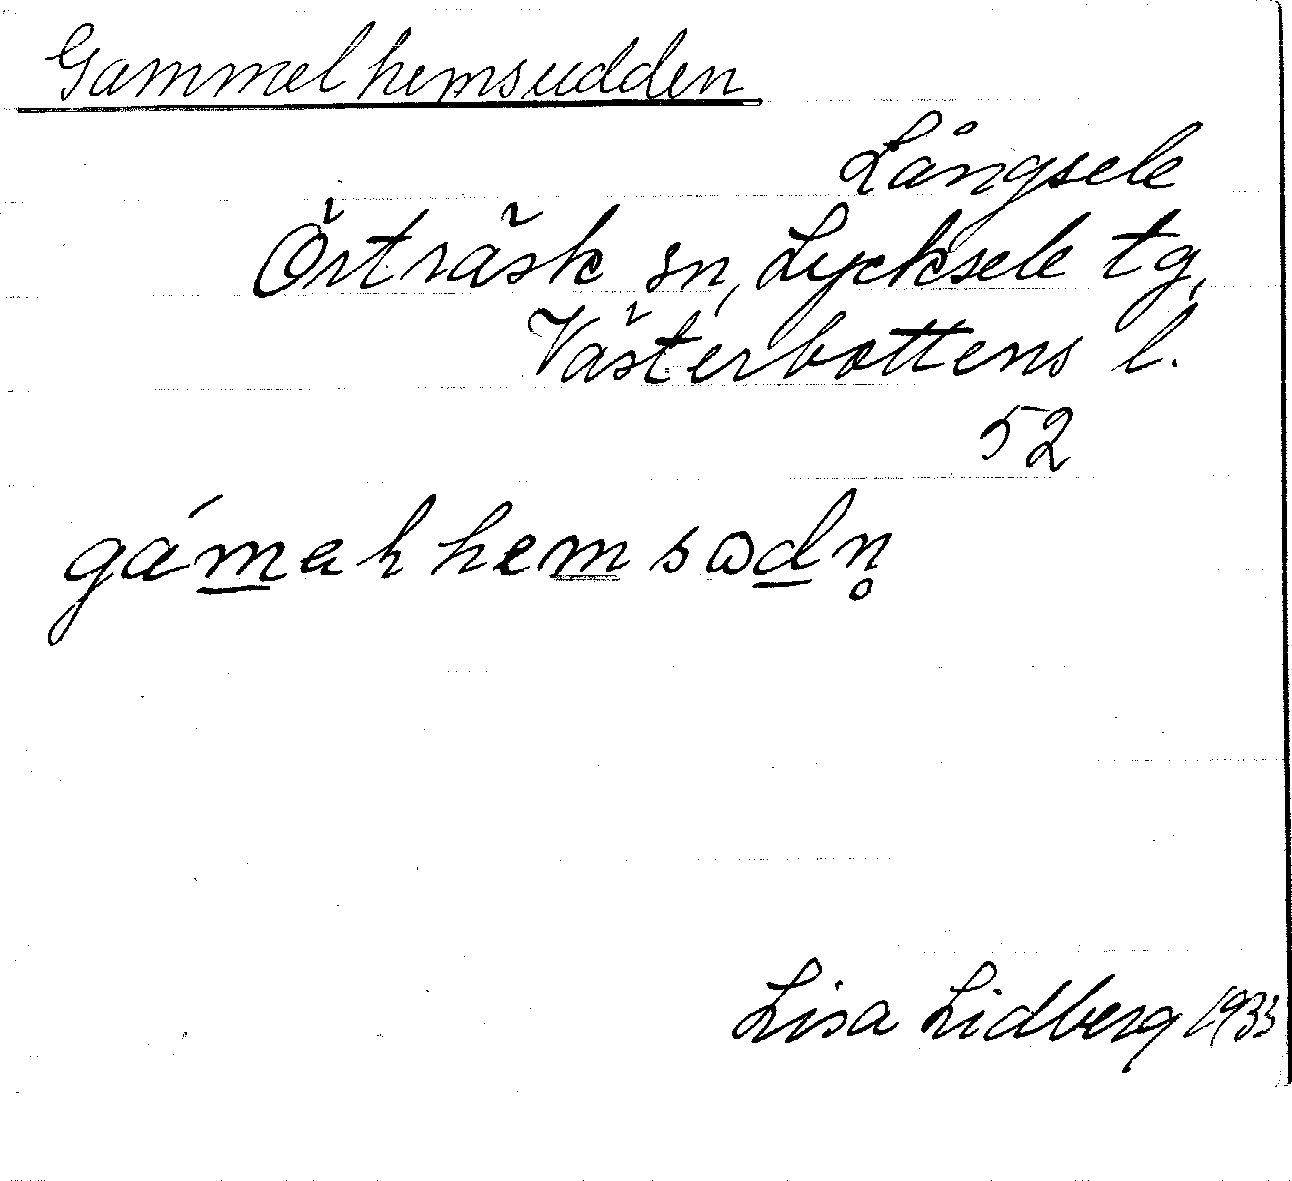 Gammelhemsudden
Långsele
Örträsk sn, Lycksele tg,
Västerbottens l.
52
gámah hem sωdn̥
Lisa Lidberg 1933